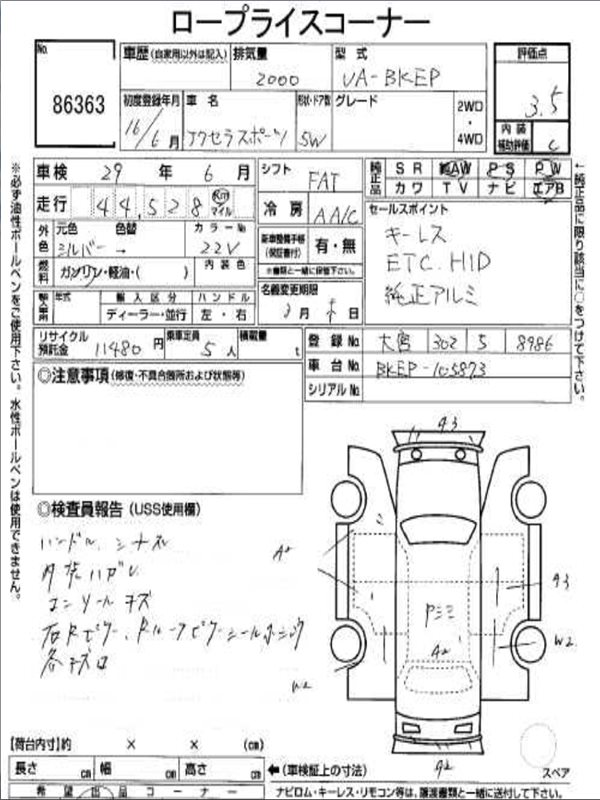 ロープライスコーナー
No.
86363
車歴(自家用以外は記入)
排気量
2000
型式
UA-BKEP
評価点
3.5
初度登録年月
16/6月
車名
アクセラスポーツ
形状・ドア数
5W
グレード
2WD・4WD
内装補助評価
C
車検 29年 6月
シフト
FAT
純正品
SR AW PS PW
カワ TV ナビ エアB
走行
44,528 Km マイル
冷房
AA/C
セールスポイント
キーレス
ETC. HID
純正アルミ
外色
元色 色替 カラーNo
シルバー → 22V
新車整備手帳(保証書付)
有・無
※書類と一緒に保管下さい。
燃料
ガソリン・軽油・( )
内装色
名義変更期限
月 日
輸入車用
年式 輸入区分 ハンドル
ディーラー・並行 左・右
リサイクル預託金
11480円
乗車定員
5人
積載量
t
登録No.
大宮 302 5 8986
車台No.
BKEP-105873
シリアルNo.
◎注意事項(修復・不具合箇所および状態等)
◎検査員報告(USS使用欄)
ハンドル、シナズレ
内張ハガレ
コンソールキズ
各キズロ
A2
A3
W2
Pミミ
【荷台内寸】約 × × (cm)
長さ cm 幅 cm 高さ cm
←(車検証上の寸法)
スペア
希望出品コーナー
ナビロム・キーレス・リモコン等は、譲渡書類と一緒に送付して下さい。
※必ず油性ボールペンをご使用下さい。水性ボールペンは使用できません。
←純正品に限り該当に○をつけて下さい。